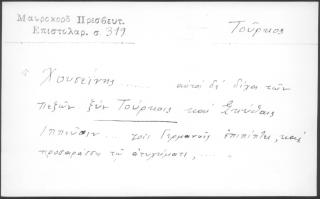 Μαυροκορδ Πρεσβευτ.
Επιστολαρ. σ. 319
Τοῦρκος
Χουσεΐνης ..... αυτοί δέ δίχα τῶν
πεζῶν ξύν Τούρκοις καί Σκύθαις
ἱππεῦσιν ... τοῖς Γερμανοῖς ἐπιπίπτει, καί
προσαράσσει τῷ ἀτυχήματι, ....